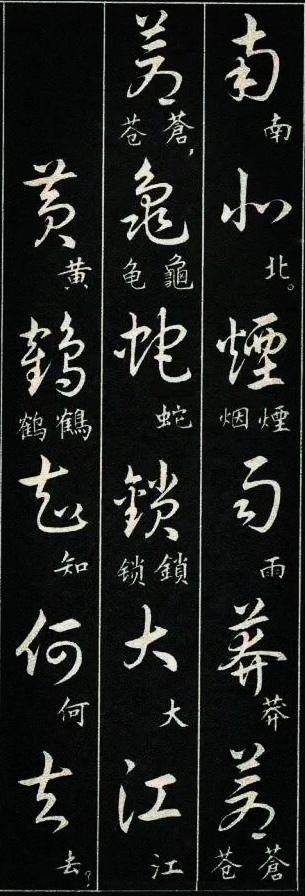 南北煙雨莽蒼
南北。烟煙雨莽苍蒼
蒼龜蛇鎖大江
苍蒼，龟龜蛇锁鎖大江
黃鶴知何去
黄鹤鶴知何去？